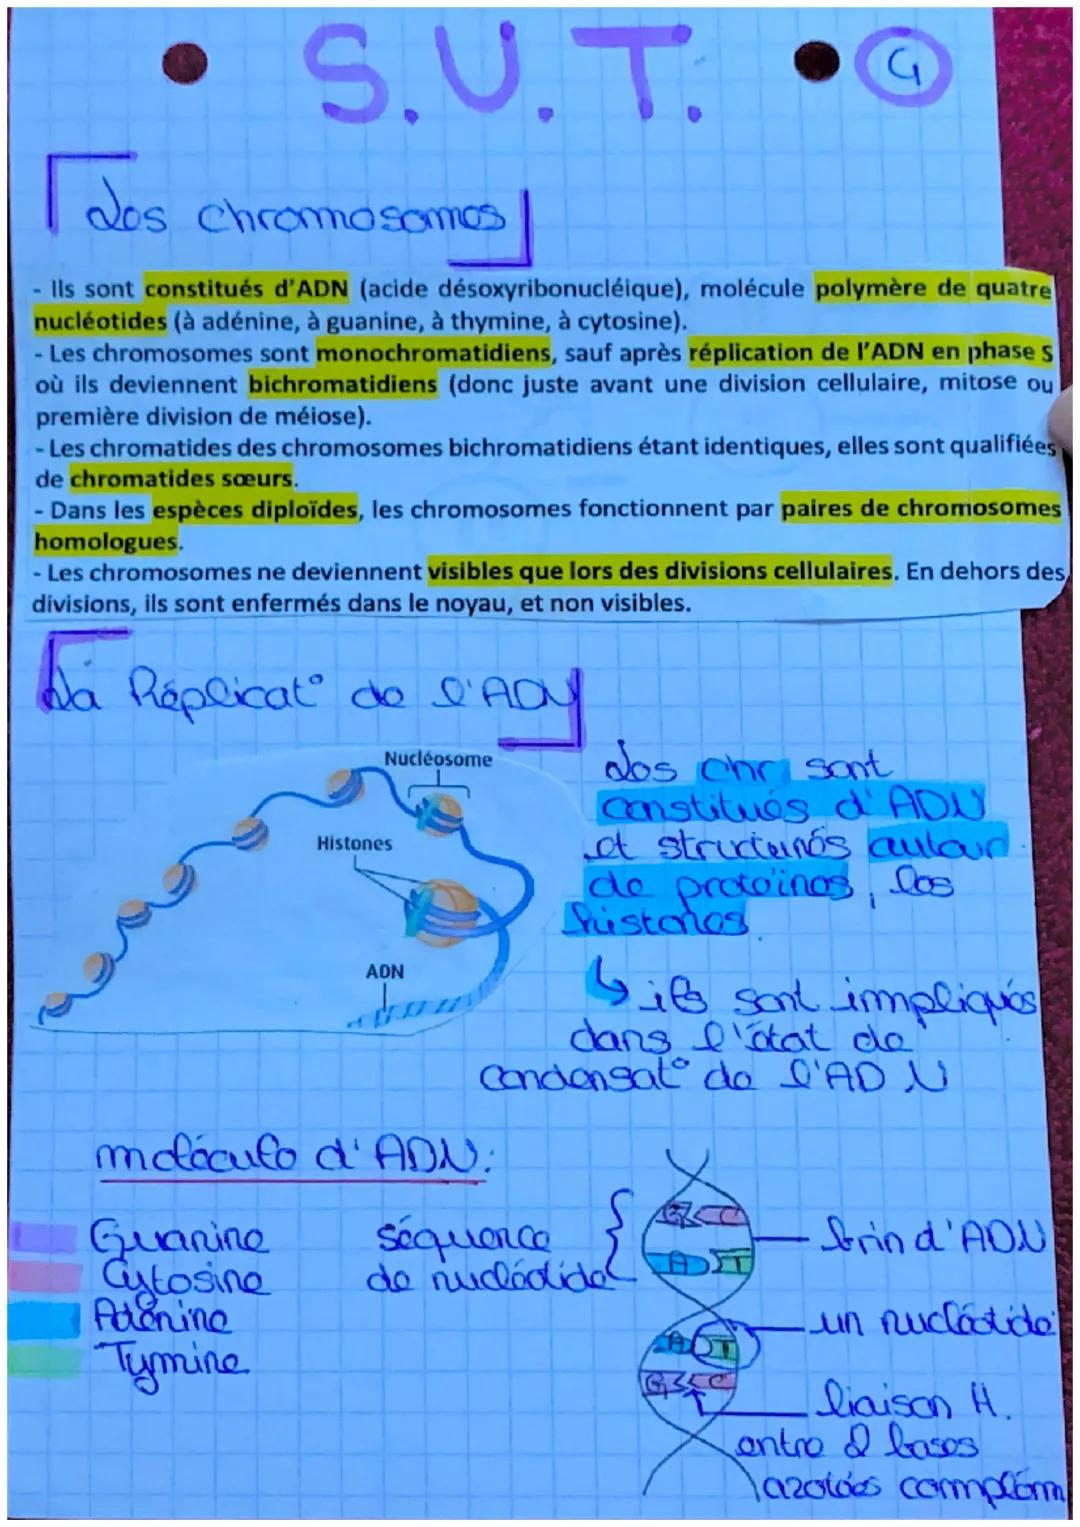 S.V.T.
G
Les chromosomes
- Ils sont constitués d'ADN (acide désoxyribonucléique), molécule polymère de quatre
nucléotides (à adénine, à guanine, à thymine, à cytosine).
- Les chromosomes sont monochromatidiens, sauf après réplication de l'ADN en phase S
où ils deviennent bichromatidiens (donc juste avant une division cellulaire, mitose ou
première division de méiose).
- Les chromatides des chromosomes bichromatidiens étant identiques, elles sont qualifiées
de chromatides sœurs.
- Dans les espèces diploïdes, les chromosomes fonctionnent par paires de chromosomes
homologues.
- Les chromosomes ne deviennent visibles que lors des divisions cellulaires. En dehors des
divisions, ils sont enfermés dans le noyau, et non visibles.
La Réplicat° de l'ADN
Nucléosome
Histones
ADN
Les chr sont
constitués d'ADN
et structurés autour
de protéines, les
histones.
↳ ils sont impliqués
dans l'état de
condensat° de l'ADN
molécule d'ADN:
Guanine
Cytosine
Adénine
Tymine
séquence
de nucléotide
G C
A T
A T
G C
brin d'ADN
un nucléotide
liaison H.
entre 2 bases
azotées complém